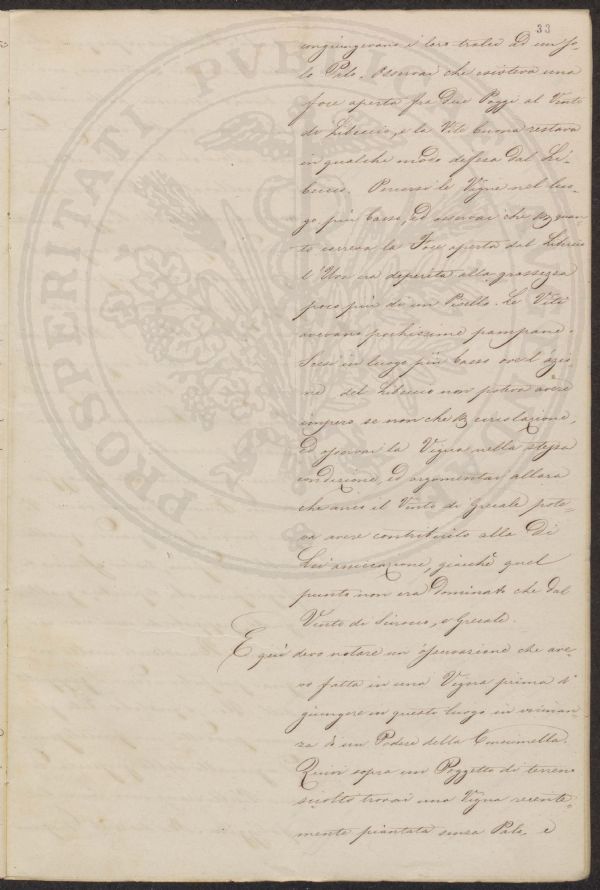 33
congiungevano i loro tralci ad un so-
lo Palo. Osservai che esisteva una
foce aperta fra due Poggi al Vento
di Libeccio, e la Vite buona restava
in qualche modo difesa dal Li-
beccio. Percorsi le Vigne nel luo-
go più basso, ed osservai che quan-
to correva la Foce aperta del Libeccio
l'Uva era deperita alla grossezza
poco più di un Pisello. Le Viti
avevano pochissime pampane.
Scesi in luogo più basso ove l'azio-
ne del Libeccio non poteva avere
impero se non che circolazione,
ed osservai la Vigna nella stessa
condizione, ed argomentai allora
che anco il Vento di Grecale pote-
va avere contribuito alla Di
Lei essiccazione, giacchè quel
punto non era dominato che dal
Vento di Scirocco, o Grecale.
E quì devo notare un'osservazione che ave-
vo fatta in una Vigna prima di
giungere in questo luogo in vicinan-
za di un Podere della
Quivi sopra un Poggetto di terreno
sciolto trovai una Vigna recente-
mente piantata senza Palo, e
PROSPERITATI PUBLICAE